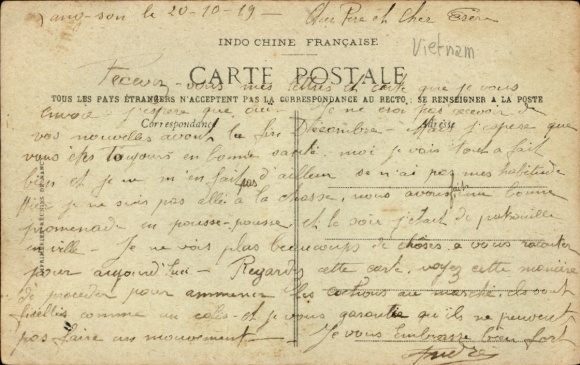 Lang-son le 20-10-19 - Cher Père et Cher Frère
INDO CHINE FRANÇAISE
Vietnam
CARTE POSTALE
Recevez-vous mes lettres et carte que je vous
TOUS LES PAYS ÉTRANGERS N'ACCEPTENT PAS LA CORRESPONDANCE AU RECTO, SE RENSEIGNER A LA POSTE
envoie j'espère que oui - Je ne crois pas recevoir de
Correspondance
vos nouvelles avant la fin Décembre - j'espère que
vous êtes toujours en bonne santé, moi je vais tout à fait
bien et je ne m'en fait pas d'ailleur se n'ai pas mes habitude
Hier je ne suis pas allé à la chasse, nous avons fait une bonne
promenade en pousse-pousse et le soir j'était de patrouille
en ville - Je ne vois plus beaucoup de chôses a vous raconter
pour aujourd'hui - Regardez cette carte, voyez cette manière
de procéder pour ammener les cochons au marché, ils sont
ficellés comme un colis et je vous garantie qu'ils ne peuvent
pas faire un mouvement - Je vous Embrasse bien fort
André